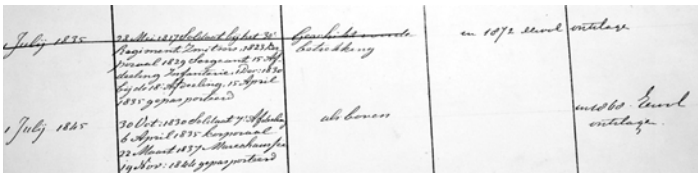 1 Julij 1835
28 Mei 1817 Soldaat bij het 30e
Regiment Zwitsers, 1823 Kor
poraal 1829 Sergeant 15 Af
deeling Infanterie, 1 Dec: 1830
bij de 18 Afdeeling, 15 April
1835 gepasporteerd
Geschikt voor de
betrekking
en 1872 eervol ontslagen
1 Julij 1845
30 Oct: 1830 Soldaat 7e Afdeeling
6 April 1835 Korporaal
22 Maart 1837 Marechaussee
19 Nov: 1844 gepasporteerd
als boven
in 1860. Eervol
ontslagen.